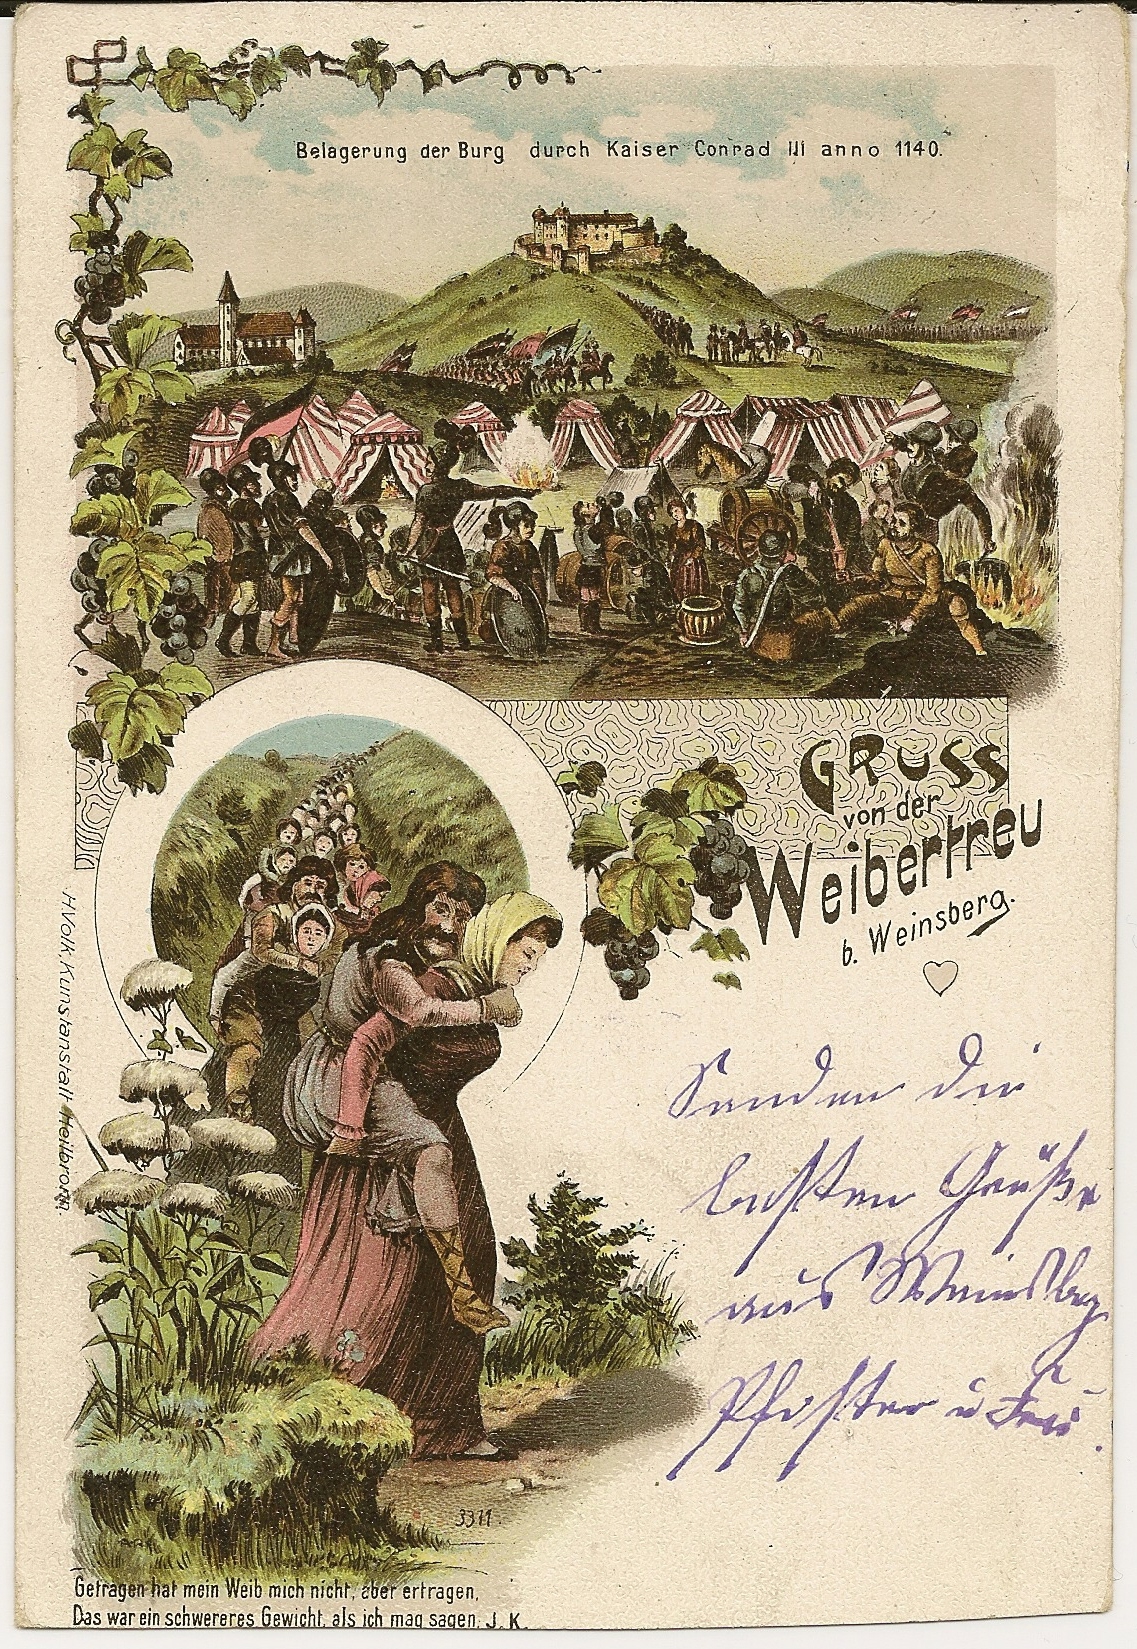 Belagerung der Burg durch Kaiser Conrad III anno 1140.
Gruss
von der
Weibertreu
b. Weinsberg.
Senden die
besten Grüße
aus Weinsberg
Pfister u Frau.
H. Volk, Kunstanstalt Heilbronn.
3311.
Getragen hat mein Weib mich nicht, aber ertragen,
Das war ein schwereres Gewicht, als ich mag sagen. J. K.